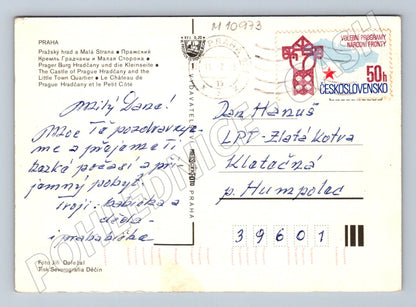 M 10973
PRAHA
Pražský hrad a Malá Strana • Пражский
Кремль Градчаны и Малая Сторона •
Prager Burg Hradčany und die Kleinseite •
The Castle of Prague Hradčany and the
Little Town Quartier • Le Château de
Prague Hradčany et le Petit Côté
VOLEBNÍ PROGRAMY
NÁRODNÍ FRONTY
50h
ČESKOSLOVENSKO
Milý Jane!
Moc Tě pozdravuje-
me a přejeme Ti
hezké počasí a pří-
jemný pobyt.
Tvoji babička a
děda
i prababička
Jan Hanuš
LPT-Zlatá Kotva
Klatečná
p. Humpolec
39601
Foto Jiří Doležal
Tisk Severografia Děčín
PRAHA
POHLEDNICE CASH